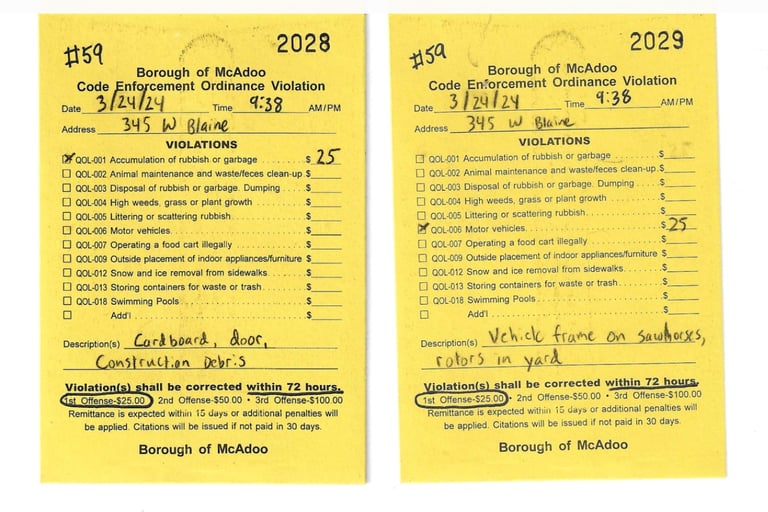 #59
2028
Borough of McAdoo
Code Enforcement Ordinance Violation
Date 3/24/24 Time 9:38 AM/PM
Address 345 W Blaine
VIOLATIONS
QOL-001 Accumulation of rubbish or garbage ........... $ 25
QOL-002 Animal maintenance and waste/feces clean-up. $
QOL-003 Disposal of rubbish or garbage. Dumping .... $
QOL-004 High weeds, grass or plant growth ............ $
QOL-005 Littering or scattering rubbish. ............... $
QOL-006 Motor vehicles. ............................. $
QOL-007 Operating a food cart illegally ............... $
QOL-009 Outside placement of indoor appliances/furniture $
QOL-012 Snow and ice removal from sidewalks. ....... $
QOL-013 Storing containers for waste or trash. ........ $
QOL-018 Swimming Pools ............................ $
Add'l ............................ $
Description(s) Cardboard, door,
Construction Debris
Violation(s) shall be corrected within 72 hours.
1st Offense-$25.00 • 2nd Offense-$50.00 • 3rd Offense-$100.00
Remittance is expected within 15 days or additional penalties will
be applied. Citations will be issued if not paid in 30 days.
Borough of McAdoo
#59
2029
Borough of McAdoo
Code Enforcement Ordinance Violation
Date 3/24/24 Time 9:38 AM/PM
Address 345 W Blaine
VIOLATIONS
QOL-001 Accumulation of rubbish or garbage ........... $
QOL-002 Animal maintenance and waste/feces clean-up. $
QOL-003 Disposal of rubbish or garbage. Dumping .... $
QOL-004 High weeds, grass or plant growth ............ $
QOL-005 Littering or scattering rubbish. ............... $
QOL-006 Motor vehicles. ............................. $ 25
QOL-007 Operating a food cart illegally ............... $
QOL-009 Outside placement of indoor appliances/furniture $
QOL-012 Snow and ice removal from sidewalks. ....... $
QOL-013 Storing containers for waste or trash. ........ $
QOL-018 Swimming Pools ............................ $
Add'l ............................ $
Description(s) Vehicle frame on sawhorses,
rotors in yard
Violation(s) shall be corrected within 72 hours.
1st Offense-$25.00 • 2nd Offense-$50.00 • 3rd Offense-$100.00
Remittance is expected within 15 days or additional penalties will
be applied. Citations will be issued if not paid in 30 days.
Borough of McAdoo